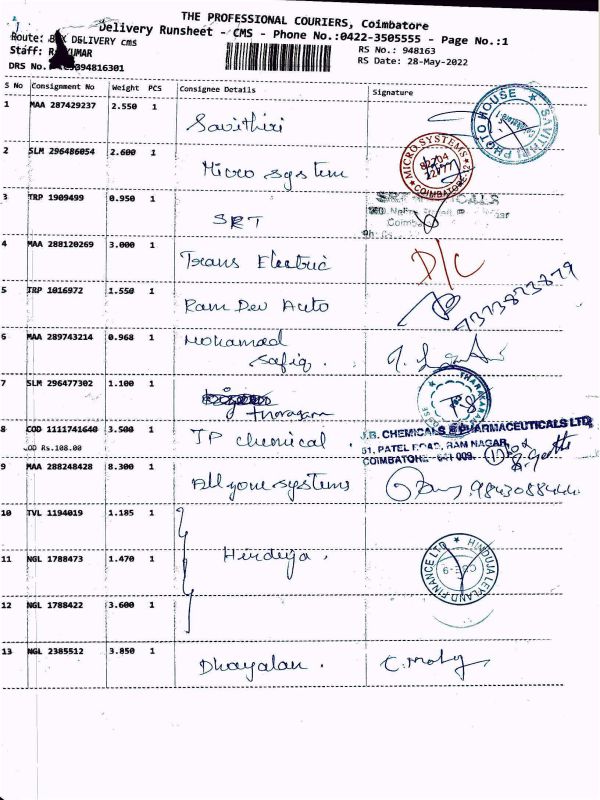 THE PROFESSIONAL COURIERS, Coimbatore
Delivery Runsheet - CMS - Phone No.:0422-3505555 - Page No.:1
Route: DELIVERY cms
Staff:
RS No.: 948163
RS Date: 28-May-2022
DRS No. 094816301
S No Consignment No Weight PCS Consignee Details Signature
1 MAA 287429237 2.550 1 Savithiri
SAVITHRI PHOTO HOUSE
2 SLM 296486054 2.600 1 Micro System
MICRO SYSTEMS COIMBATORE-12
3 TRP 1909499 0.950 1 SRT
4 MAA 288120269 3.000 1 Trans Electric D/C
5 TRP 1016972 1.550 1 Ram Dev Auto 7373823879
6 MAA 289743214 0.968 1 Mohamad
Safiq.
7 SLM 296477302 1.100 1
8 COD 1111741640 3.500 1 JP chemical
OD Rs.108.00
J.B. CHEMICALS & PHARMACEUTICALS LTD
51, PATEL ROAD, RAM NAGAR,
COIMBATORE - 641 009.
9 MAA 288248428 8.300 1 All gone systems 9843088444
10 TVL 1194019 1.185 1
11 NGL 1788473 1.470 1 Hinduja.
HINDUJA LEYLAND FINANCE LTD
CBE-9
12 NGL 1788422 3.600 1
13 NGL 2385512 3.850 1 Dhayalan.